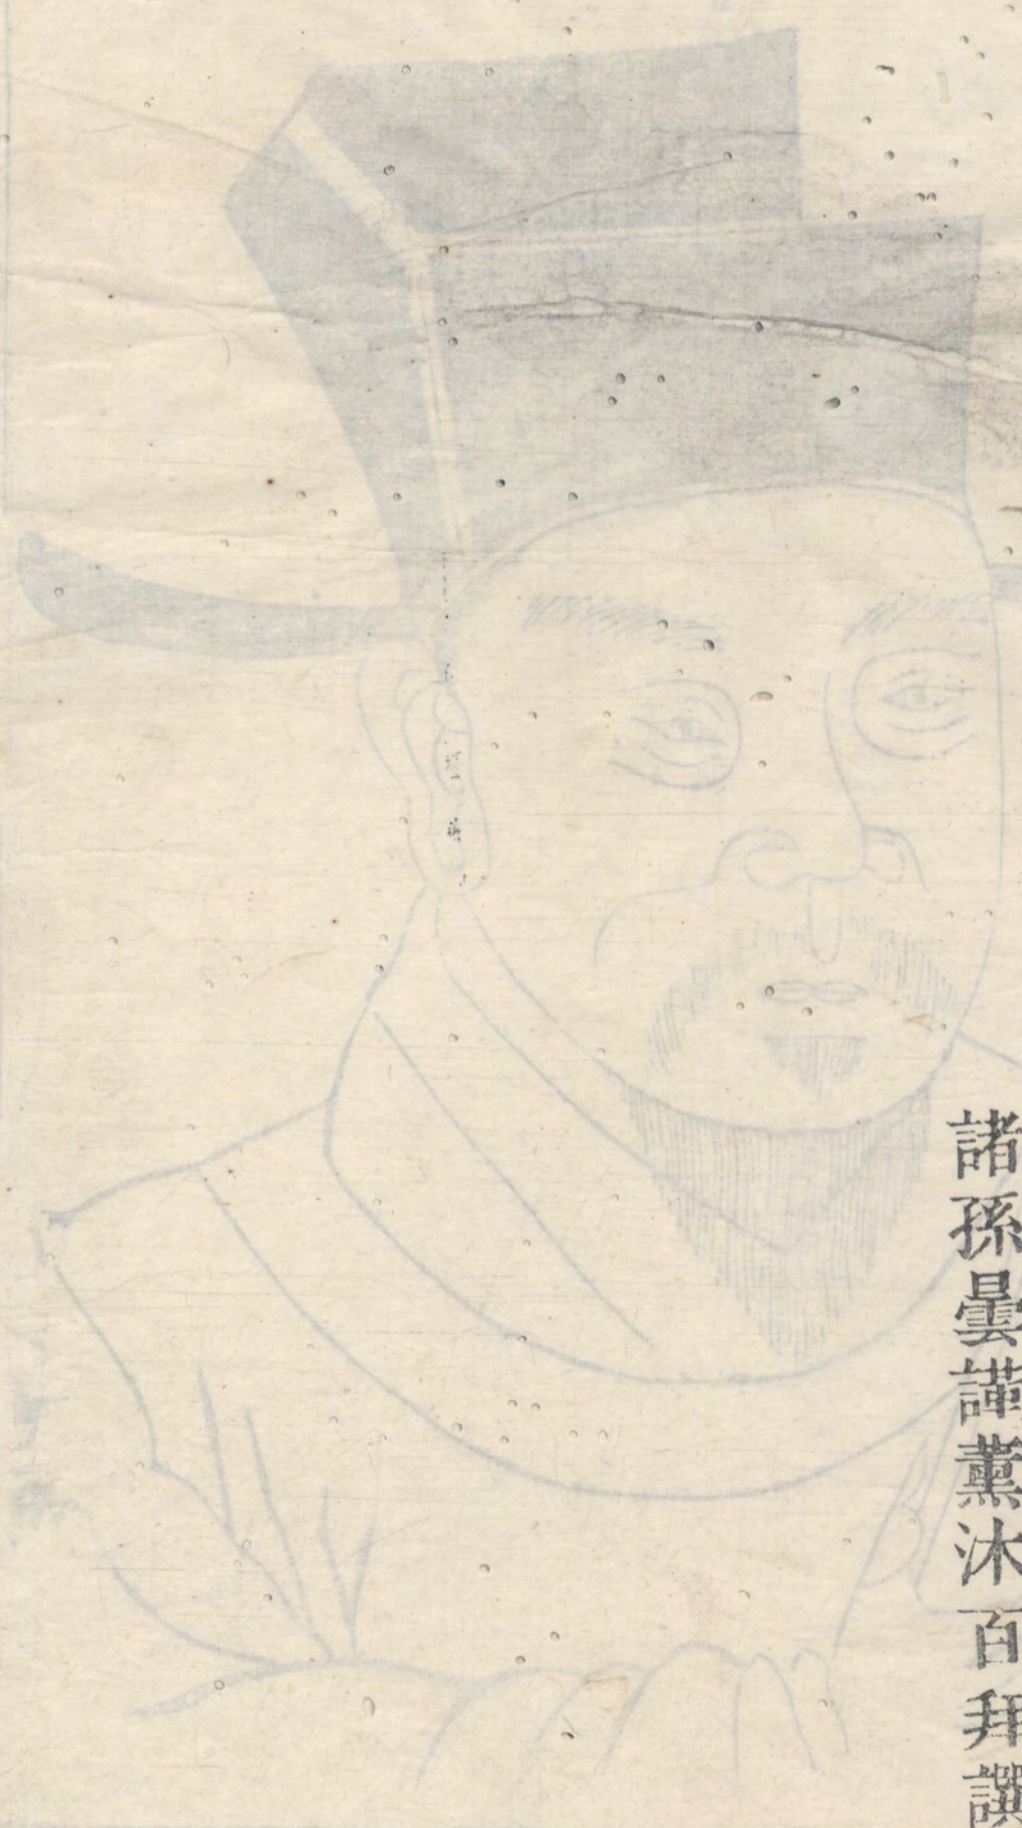 諸孫曇謹薰沐百拜譔